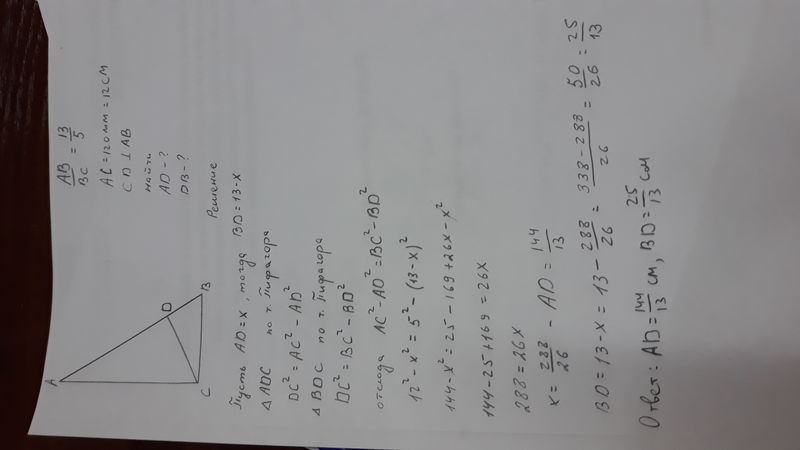 A
D
C
B
AB/BC = 13/5
AC = 120 мм = 12 см
CD ⊥ AB
найти
AD - ?
DB - ?
Решение
Пусть AD = x, тогда BD = 13 - x
△ ADC по т. Пифагора
DC² = AC² - AD²
△ BDC по т. Пифагора
DC² = BC² - BD²
отсюда AC² - AD² = BC² - BD²
12² - x² = 5² - (13 - x)²
144 - x² = 25 - 169 + 26x - x²
144 - 25 + 169 = 26x
288 = 26x
x = 288/26 - AD = 144/13
BD = 13 - x = 13 - 288/26 = 338 - 288/26 = 50/26 = 25/13
Ответ: AD = 144/13 см, BD = 25/13 см